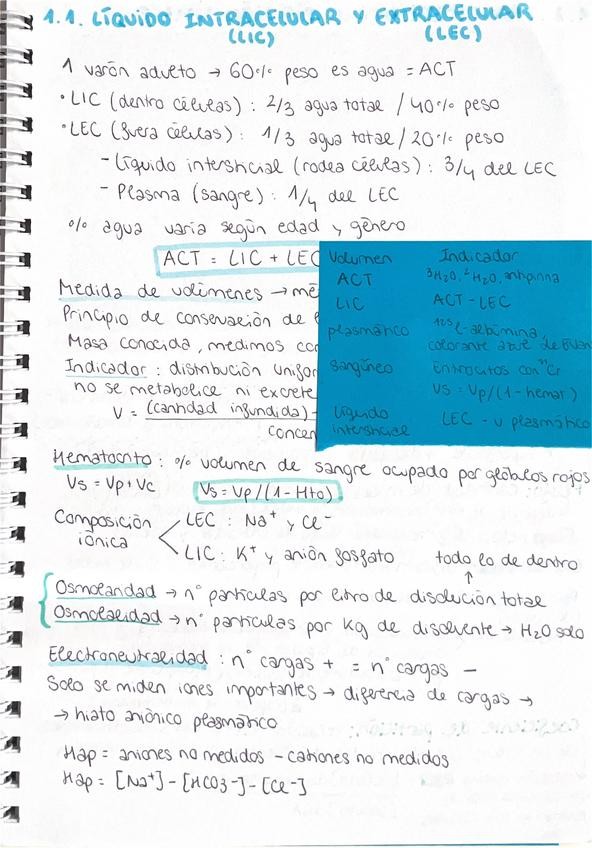 1.1. LÍQUIDO INTRACELULAR Y EXTRACELULAR
(LIC) (LEC)
1 varón adulto → 60% peso es agua = ACT
• LIC (dentro células) : 2/3 agua total / 40% peso
• LEC (fuera células) : 1/3 agua total / 20% peso
- Líquido intersticial (rodea células) : 3/4 del LEC
- Plasma (sangre) : 1/4 del LEC
% agua varia según edad y género
ACT = LIC + LEC
Medida de volúmenes → mé
Principio de conservación de
Masa conocida, medimos co
Indicador : distribución unifor
no se metabolice ni excrete
V = (cantidad infundida) -
concen
Volumen Indicador
ACT ³H₂O, ²H₂O, antipirina
LIC ACT - LEC
plasmático ¹²⁵I-albúmina,
colorante azul de Evan
sanguíneo Eritrocitos con ⁵¹Cr
Vs = Vp/(1-hemat)
Líquido LEC - v plasmático
intersticial
Hematocrito : % volumen de sangre ocupado por glóbulos rojos
Vs = Vp + Vc Vs = Vp/(1 - Hto)
Composición LEC : Na⁺ y Cl⁻
iónica LIC : K⁺ y anión fosfato todo lo de dentro
↑
Osmolaridad → nº partículas por litro de disolución total
Osmolalidad → nº partículas por Kg de disolvente → H₂O solo
Electroneutralidad : nº cargas + = nº cargas -
Solo se miden iones importantes → diferencia de cargas →
→ hiato aniónico plasmático
Hap = aniones no medidos - cationes no medidos
Hap = [Na⁺] - [HCO₃⁻] - [Cl⁻]